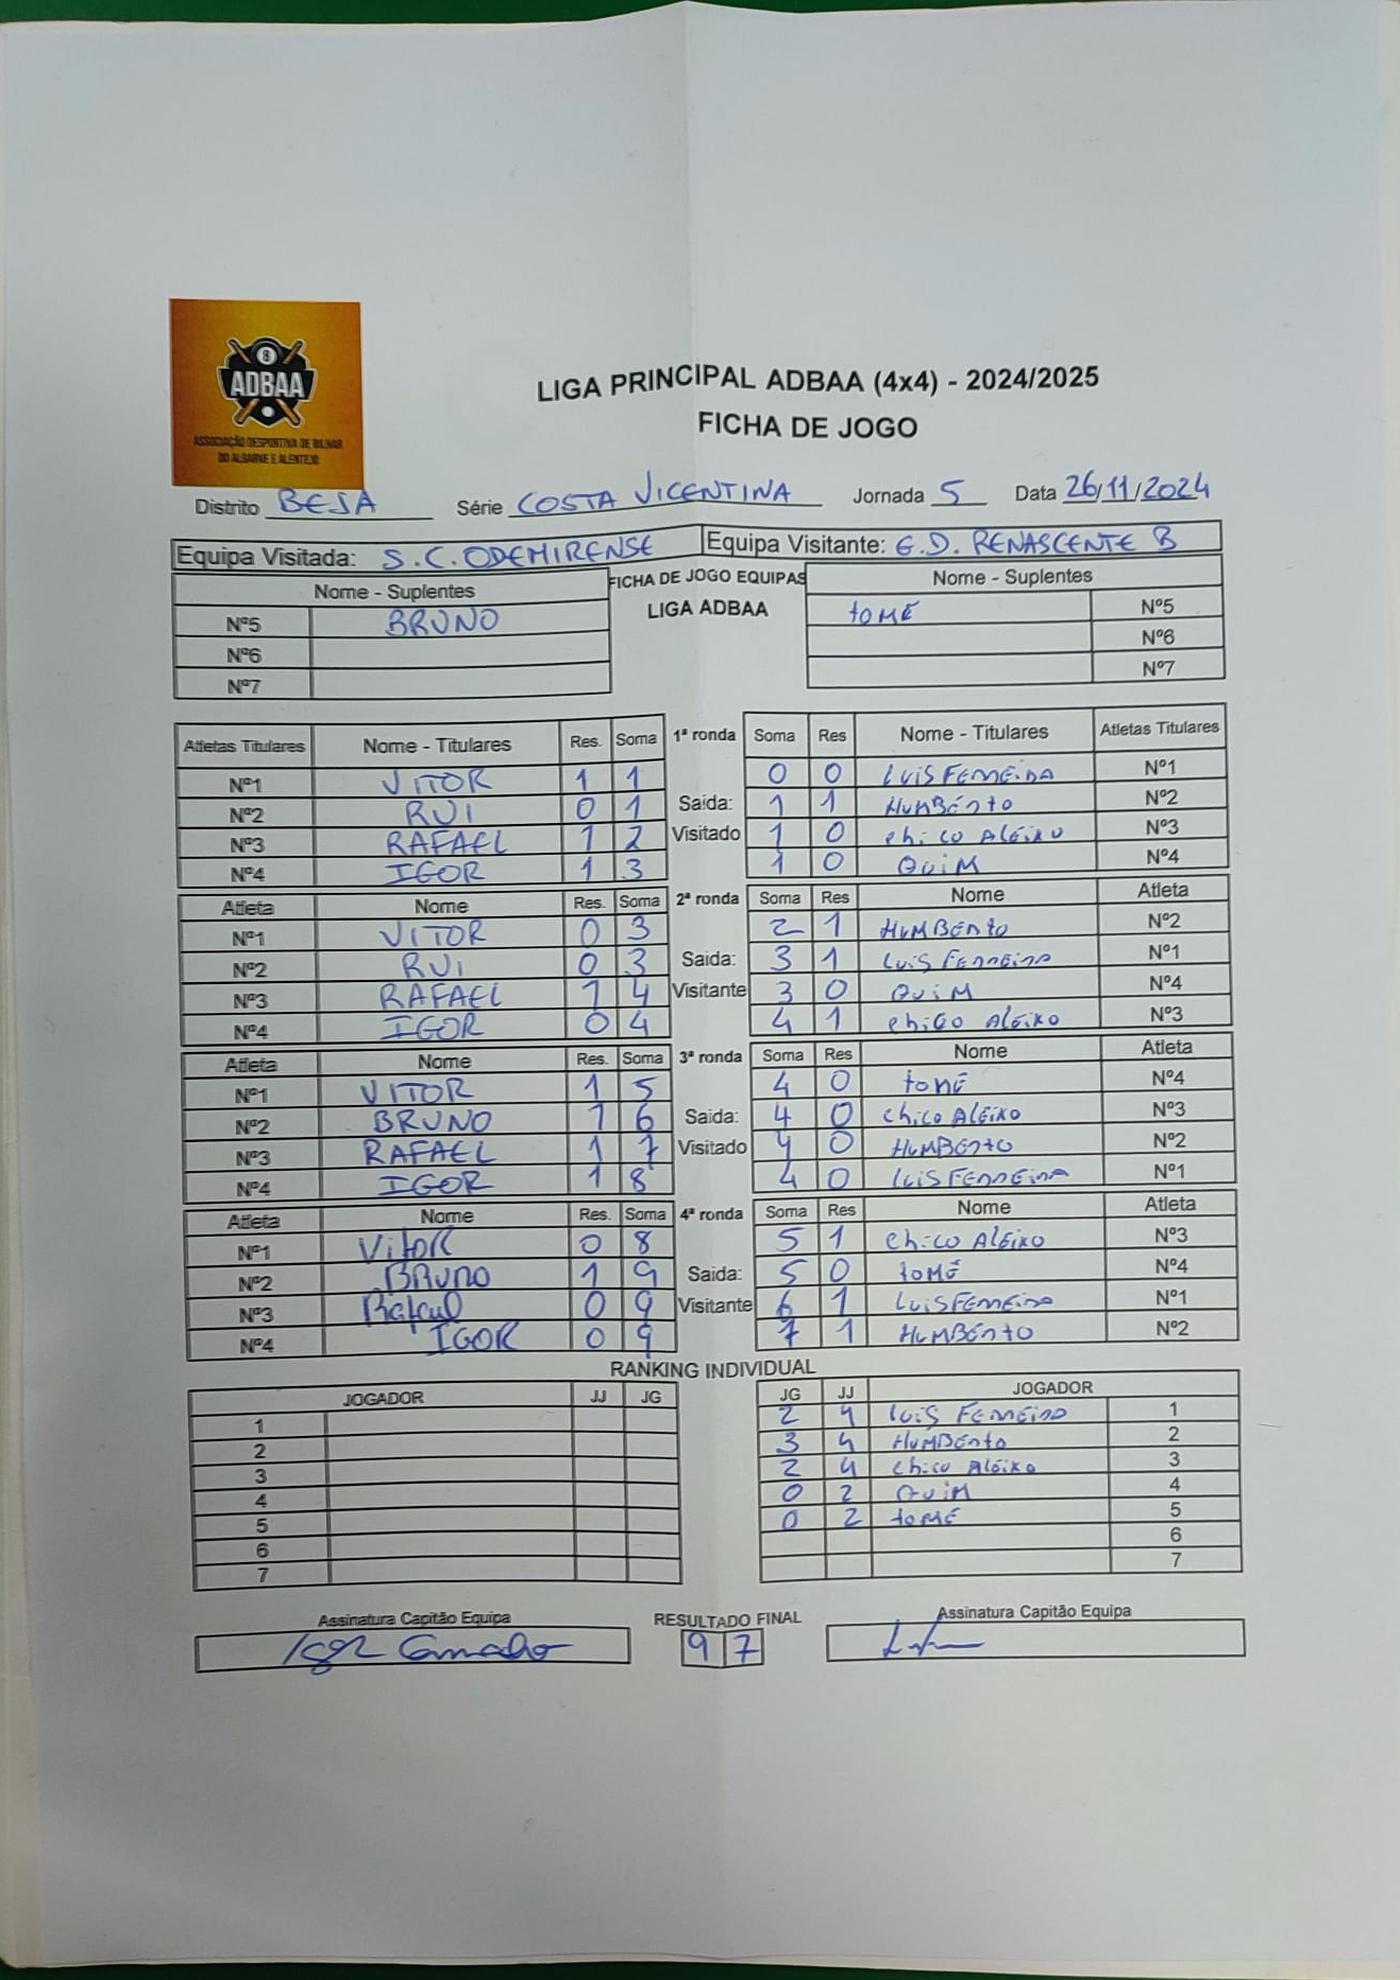 8
ADBAA
ASSOCIAÇÃO DESPORTIVA DE BILHAR
DO ALGARVE E ALENTEJO
LIGA PRINCIPAL ADBAA (4x4) - 2024/2025
FICHA DE JOGO
Distrito BEJA Série COSTA VICENTINA Jornada 5 Data 26/11/2024
Equipa Visitada: S.C. ODEMIRENSE Equipa Visitante: G.D. RENASCENTE B
Nome - Suplentes FICHA DE JOGO EQUIPAS Nome - Suplentes
Nº5 BRUNO LIGA ADBAA TOMÉ Nº5
Nº6 Nº6
Nº7 Nº7
Atletas Titulares Nome - Titulares Res. Soma 1ª ronda Soma Res Nome - Titulares Atletas Titulares
Nº1 VITOR 1 1 0 0 LUIS FERREIRA Nº1
Nº2 RUI 0 1 Saida: 1 1 HUMBERTO Nº2
Nº3 RAFAEL 1 2 Visitado 1 0 Chico Aleixo Nº3
Nº4 IGOR 1 3 1 0 QUIM Nº4
Atleta Nome Res. Soma 2ª ronda Soma Res Nome Atleta
Nº1 VITOR 0 3 2 1 HUMBERTO Nº2
Nº2 RUI 0 3 Saida: 3 1 LUIS FERREIRA Nº1
Nº3 RAFAEL 1 4 Visitante 3 0 QUIM Nº4
Nº4 IGOR 0 4 4 1 Chico Aleixo Nº3
Atleta Nome Res. Soma 3ª ronda Soma Res Nome Atleta
Nº1 VITOR 1 5 4 0 TOMÉ Nº4
Nº2 BRUNO 1 6 Saida: 4 0 Chico Aleixo Nº3
Nº3 RAFAEL 1 7 Visitado 4 0 HUMBERTO Nº2
Nº4 IGOR 1 8 4 0 LUIS FERREIRA Nº1
Atleta Nome Res. Soma 4ª ronda Soma Res Nome Atleta
Nº1 VitoR 0 8 5 1 Chico Aleixo Nº3
Nº2 BRUNO 1 9 Saida: 5 0 TOMÉ Nº4
Nº3 Rafael 0 9 Visitante 6 1 LUIS FERREIRA Nº1
Nº4 IGOR 0 9 7 1 HUMBERTO Nº2
RANKING INDIVIDUAL
JOGADOR JJ JG JG JJ JOGADOR
1 2 4 LUIS FERREIRA 1
2 3 4 HUMBERTO 2
3 2 4 Chico Aleixo 3
4 0 2 QUIM 4
5 0 2 TOMÉ 5
6 6
7 7
Assinatura Capitão Equipa RESULTADO FINAL Assinatura Capitão Equipa
Igor Camacho 9 7